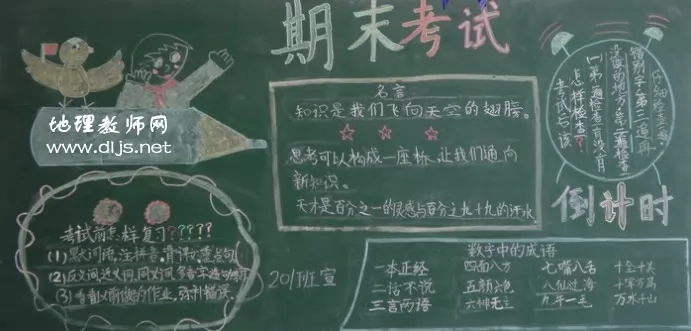 期末考试
地理教师网
www.dljs.net
名言
知识是我们飞向天空的翅膀。
思考可以构成一座桥,让我们通向
新知识。
天才是百分之一的灵感与百分之九十九的汗水.
考试与该
怎样检查?
(1)第一遍检查有没有
没做的地方,第二遍检查
错别字,第三遍再
仔细检查
倒计时
考试前怎样复习????
(1)默词语,注拼音,背课文,重点句
(2)反义词,近义词,同义词,多音字
(3)看看以前做的作业,弥补错误.
201班宣
数字中的成语
一本正经 四面八方 七嘴八舌
二话不说 五颜六色 八仙过海
三言两语 六神无主 九牛一毛 万水千山